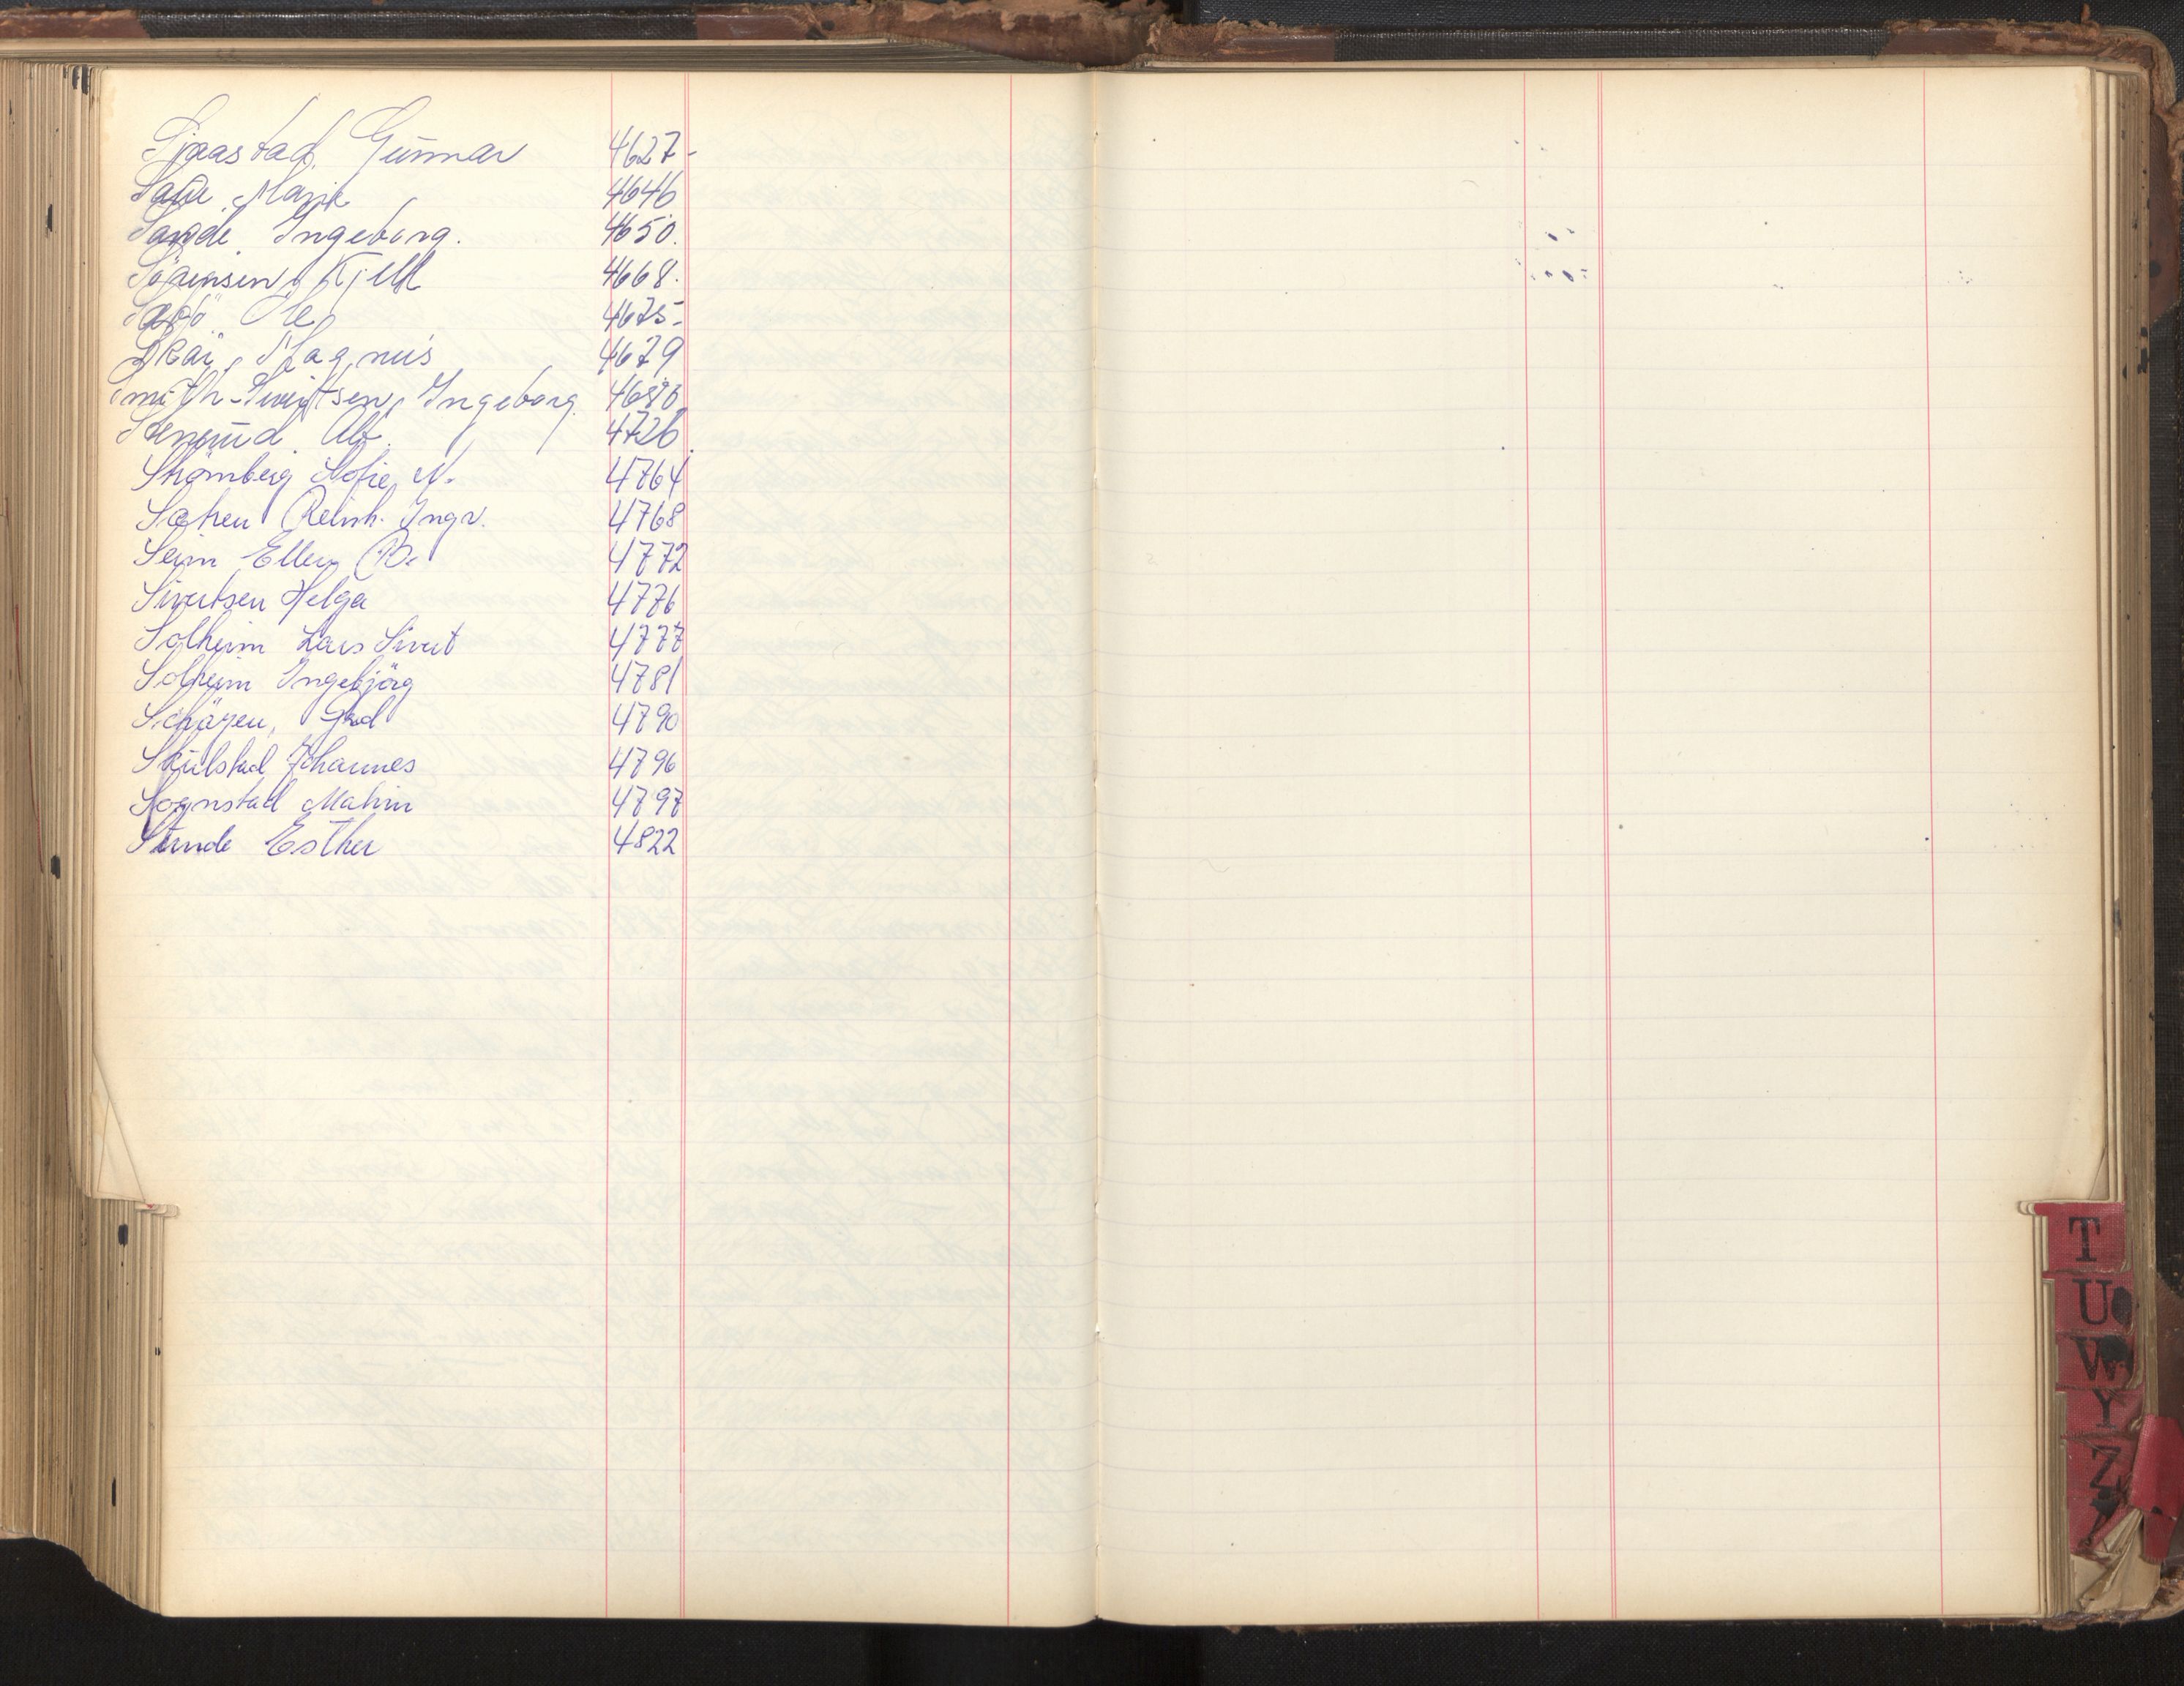 Sjaastad, Gunnar 4627-
Marie 4646
Sande Ingeborg. 4650.
Sörensen, Kjell 4668.
Ole 4675-
Skar, Magnus 4679
Smith-Sivertsen, Ingeborg. 4680
Stensrud Alf. 4726
Strömberg Sofie N. 4764
Reinh. Ingv. 4768
Seim Ellen B. 4772
Sivertsen Helga 4776
Solheim Lars Sivert 4777
Solheim Ingebjörg 4781
4790
Skulstad Johannes 4796
Sognstad 4797
Stunde Esther 4822
T
U
W
Y
Z